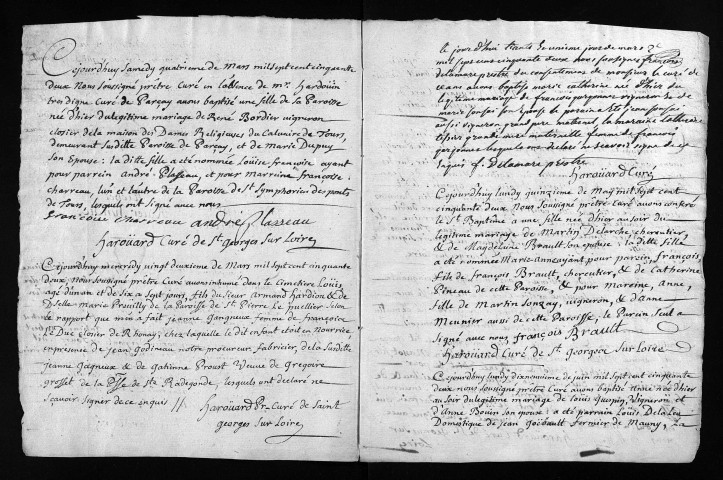 Cejourd'huy Samedy quatrieme de Mars mil sept cent cinquante
deux Nous soussigné prêtre Curé en l'absence de Mr. Hardoüin
tres digne Curé de Parçay avons baptisé une fille de sa Paroisse
née d'hier du legitime mariage de René Bordier vigneron
closier de la maison des Dames Religieuses du Calvaire de Tours,
demeurant Surditte Paroisse de Parçay, et de Marie Dupuy
Son Epouse: la ditte fille a eté nommée Loüise francoise ayant
pour parrein André Plasseau, et pour Marraine francoise
charreau, l'un et l'autre de la Paroisse de St Symphorien des ponts
de Tours, lesquels ont signé avec nous
francoise charreau andré plasseau
Harouard Curé de St. georges Sur Loire
Cejourd'huy mercredy vingt deuxieme de Mars mil sept cent cinquante
deux, Nous soussigné prêtre Curé avons inhumé dans le Cimetiere Loüis
agé d'un an et de six a sept jours, fils du Sieur Armand hardion & de
Dlle Marie Prouilly de la Paroisse de St Pierre Le puellier Selon
le rapport que m'en a fait jeanne gangneux femme de francois
Le Duc closier de Rhonay; chez laquelle le dit enfant etoit en Nourrice
en presence de jean Godineau notre procureur fabricier, de la Surditte
jeanne Gagneux & de Gatienne Proust Veuve de Gregoire
grosset de la Psse de Ste Radegonde, lesquels ont declaré ne
scavoir Signer de ce enquis //. Harouard Pr. Curé de Saint
georges Sur Loire
le jour d'hui trante et unieme jour de mars
mil sept cens cinquante deux nous soussigné francois
delamare prestre du consentement de monsieur le curé de
ceans avons baptisé marie catherine née d'hier du
legitime mariage de francois
aussi vigneron la maraine Catherine
femme de francois
laquelle
enquis f. Delamare prestre
Harouard Curé
Cejourd'huy lundy quinzieme de May mil sept cent
cinquante deux Nous Soussigné prêtre Curé avons conferé
le St. Baptême a une fille née d'hier au soir du
legitime mariage de Martin Delarche chercutier,
& de Magdeleine Brault Son epouse: la ditte fille
a eté nommée Marie-Anne ayant pour parein, françois
fils de françois Brault, chercutier, & de Catherine
Pineau de cette Paroisse, & pour mareine, Anne,
fille de Martin Sonzay, vigneron, & d'anne
Meunier aussi de cette Paroisse, le Parein Seul a
Signé avec nous françois Brault
Harouard Curé de St. georges Sur Loire
Cejourd'huy lundy dixneuvieme de juin mil sept cent cinquante
deux nous soussigné prêtre Curé avons baptisé née d'hier
au Soir du legitime mariage de Loüis Guespin, Vigneron et
d'Anne Bouin Son epouse: a eté parrain Loüis
Domestique de jean Goubault fermier de Mauny, La